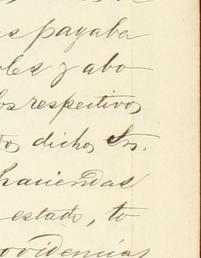 s pagaba
oles y abo
los respectivos
dos dichos Srs.
haciendas
estado, to
ovidencias